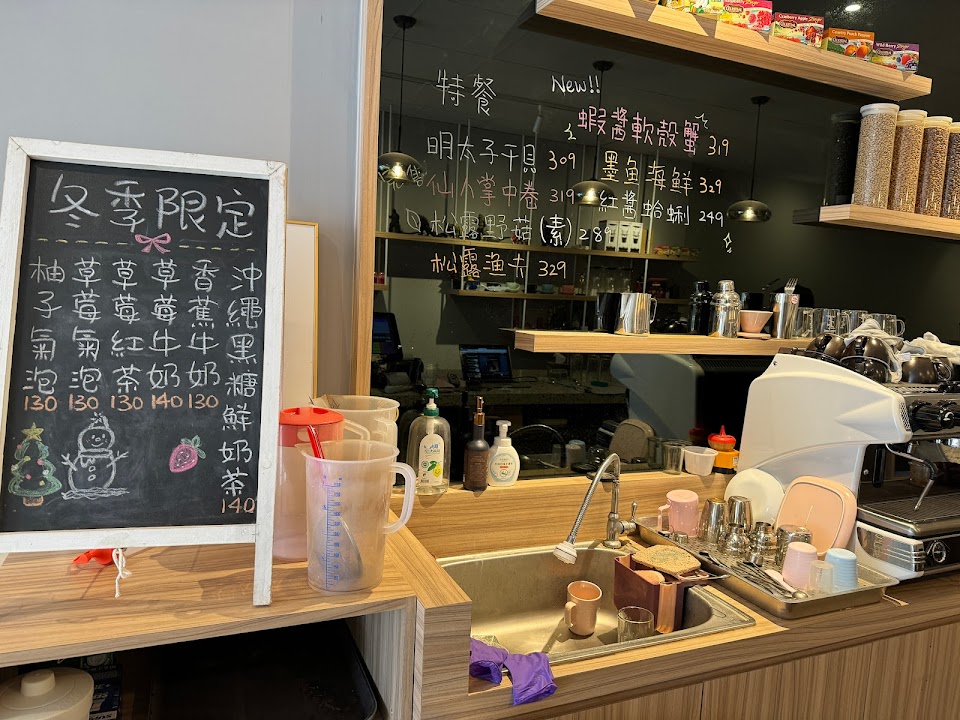 冬季限定
柚子氣泡
130
草莓氣泡
130
草莓紅茶
130
草莓牛奶
140
香蕉牛奶
130
沖繩黑糖鮮奶茶
140
特餐
明太子干貝 309
仙人掌中卷 319
松露野菇(素) 289
松露漁夫 329
New!!
蝦醬軟殼蟹 319
墨魚海鮮 329
紅醬蛤蜊 249